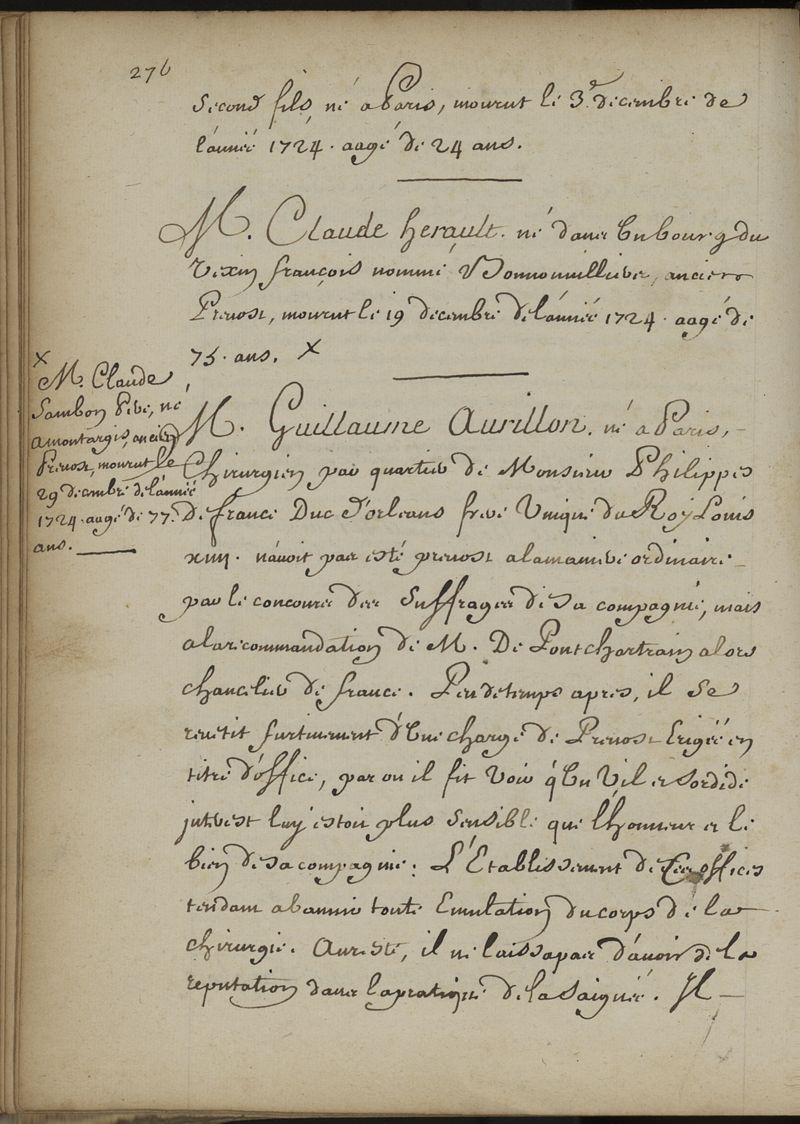 276
Second fils, né a Paris, mourut le 3e. decembre de
l'année 1724. aagé de 24 ans.
M. Claude herault. né dans Un bourg du
Vexin françois nommé, ancien
Prevost, mourut le 19 decembre de l'année 1724. aagé de
75. ans. X
X
M. Claude
Sambon Pere, né
a montargis, ancien
Prevost, mourut le
29 decembre de l'année
1724. aagé de 77.
ans.
M. Guillaume Aurillon. né a Paris,
Chirurgien par quartier de Monsieur Philippes
De france Duc d'orleans frere Unique du Roy Louis
xiiii. n'avoit pas esté prevost a la maniere ordinaire
par le concours des Suffrages de sa compagnie, mais
a la recommandation de M. De Pontchartrain alors
chancelier de france. Peu de temps apres, il se
revetit furtivement d'Une charge de Prevost Erigée en
titre d'office, par ou il fit Voir q'Un Vil et Sordide
interest luy estoit plus Sensible que l'honneur et le
bien de sa compagnie: L'Etablissement de Ces offices
tendant a bannir toute Emulation du corps de la
chirurgie. Au reste, il ne laissa pas d'avoir de la
reputation dans la pratique de la Saignée. Il